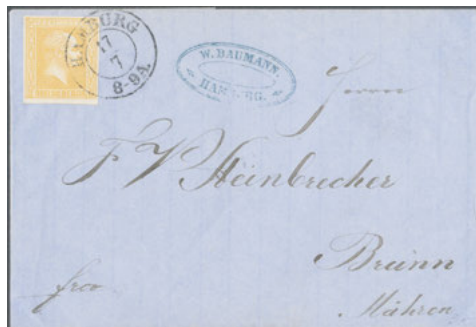 HAMBURG
17
7
8-9A.
W. BAUMANN.
HAMBURG.
Herrn
F V Steinbrecher
Brünn
Mähren
frco